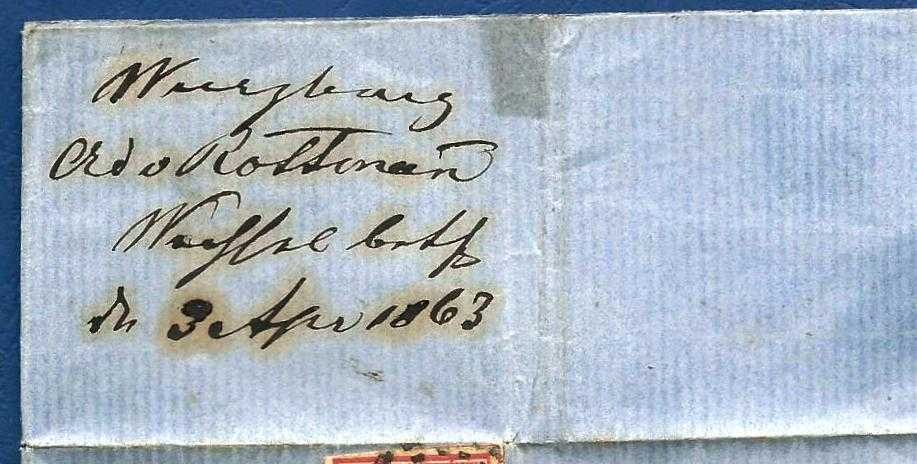 Wuerzburg
Ad v Rottman̄
Wechsel betf
dn 3 Apr 1863